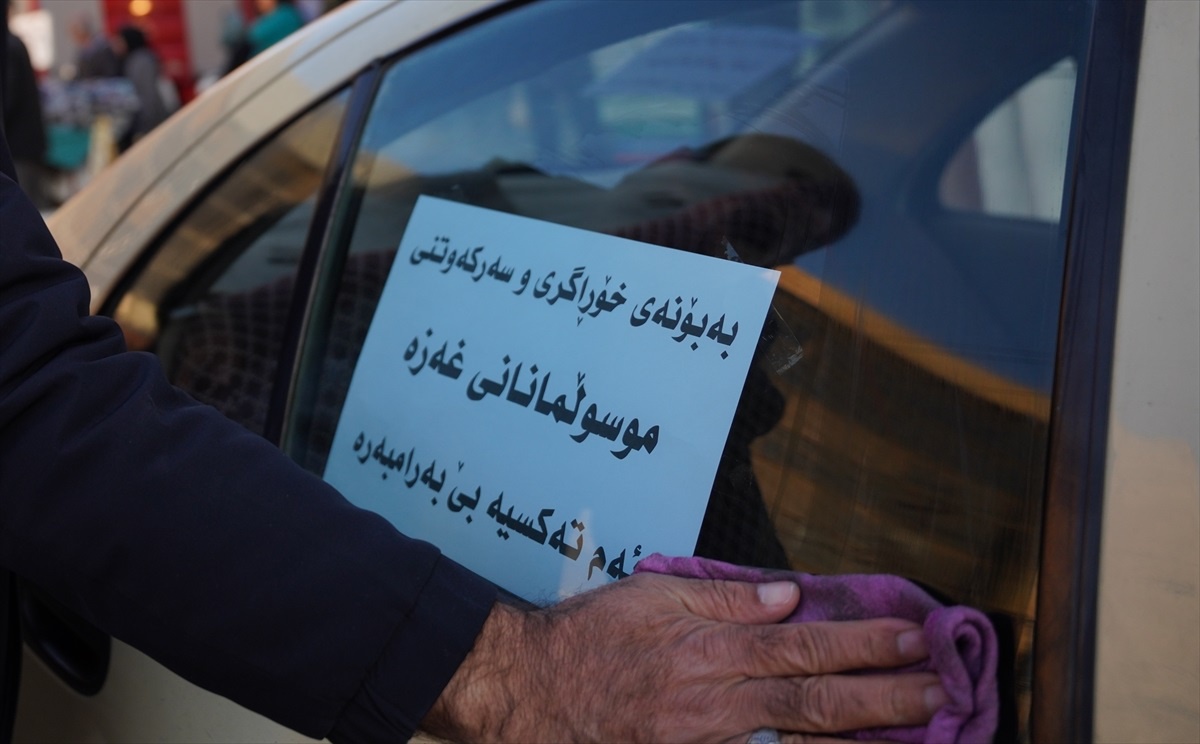 بەبۆنەی خۆڕاگری و سەرکەوتنی
موسوڵمانانی غەزە
ئەم تەکسیە بێ بەرامبەرە